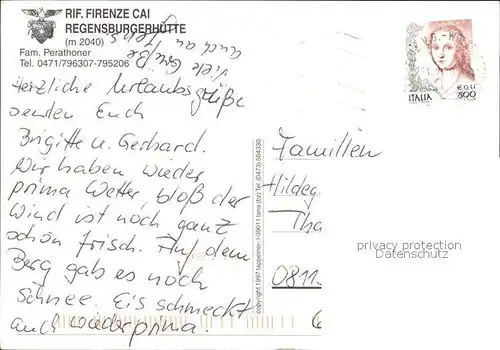 RIF. FIRENZE CAI
REGENSBURGERHÜTTE
(m 2040)
Fam. Perathoner
Tel. 0471/796307-795206
Viele Grüße
auch an Jens
Herzliche Urlaubsgrüße
senden Euch
Brigitte u. Gerhard.
Wir haben wieder
prima Wetter, bloß der
Wind ist noch ganz
schön frisch. Auf dem
Berg gab es noch
Schnee. Eis schmeckt
auch wieder prima.
copyright 1997 tappeiner - I-39011 lana (bz) Tel. (0473) 564330
ITALIA
800
Familien
Hildeg
Tha
0811
privacy protection
Datenschutz